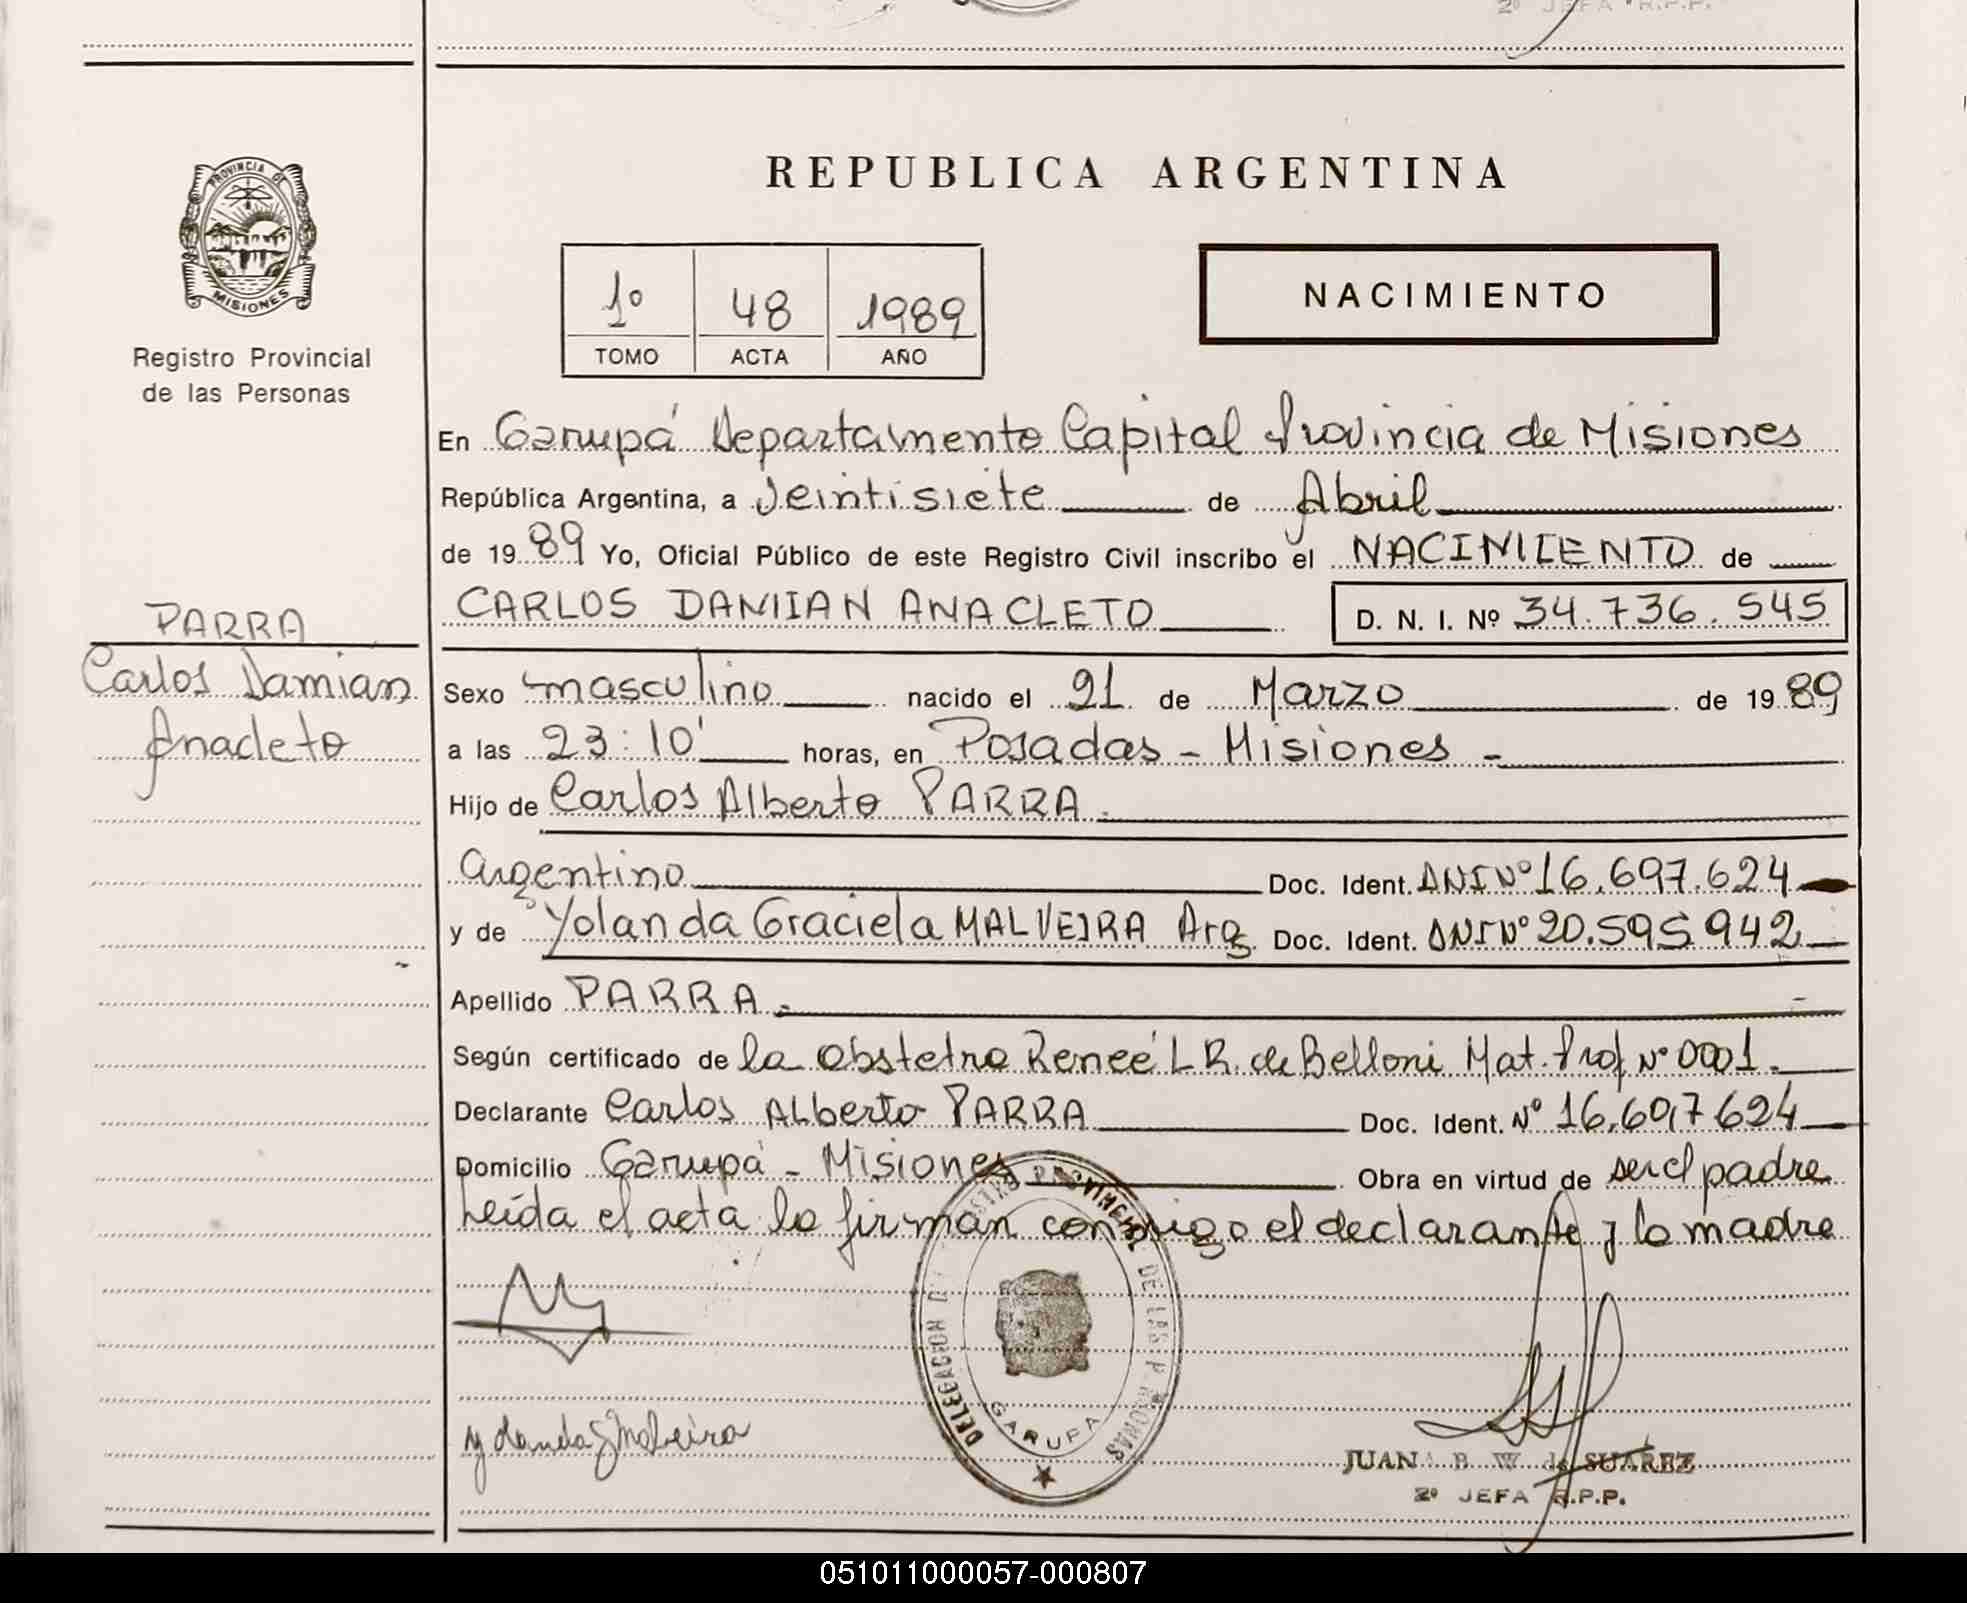 2º JEFA R.P.P.
PROVINCIA DE
MISIONES
Registro Provincial
de las Personas
PARRA
Carlos Damian
Anacleto
REPUBLICA ARGENTINA
1º 48 1989
TOMO ACTA AÑO
NACIMIENTO
En Garupá Departamento Capital Provincia de Misiones
República Argentina, a Veintisiete de Abril
de 1989 Yo, Oficial Público de este Registro Civil inscribo el NACIMIENTO de
CARLOS DAMIAN ANACLETO D. N. I. Nº 34.736.545
Sexo masculino nacido el 21 de Marzo de 1989
a las 23:10' horas, en Posadas - Misiones -
Hijo de Carlos Alberto PARRA.
Argentino Doc. Ident. DNI Nº 16.697.624
y de Yolanda Graciela MALVEIRA Arg. Doc. Ident. DNI Nº 20.595.942
Apellido PARRA.-
Según certificado de la obstetra Reneé L R. de Belloni Mat. Prof Nº 0001.
Declarante Carlos ALberto PARRA Doc. Ident. Nº 16.697.624
Domicilio Garupá - Misiones Obra en virtud de ser el padre
Leída el acta la firman conmigo el declarante y la madre
DELEGACION DEL REGISTRO PROVINCIAL DE LAS PERSONAS
GARUPA
Yolanda G Malveira
JUANA B. W. de SUAREZ
2º JEFA R.P.P.
051011000057-000807